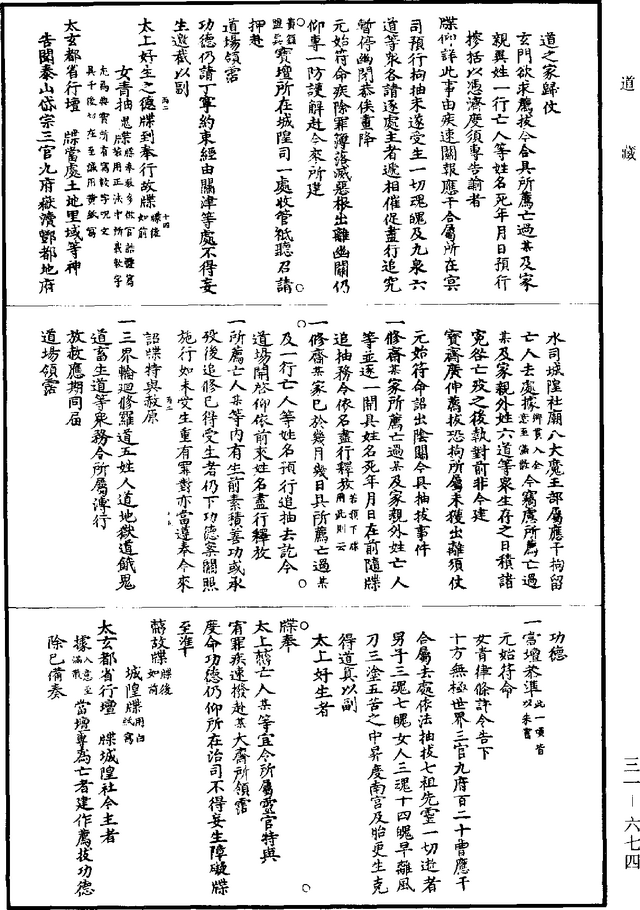 道藏
道之家歸仗
玄門欲求薦拔今合具所薦亡過某及家
親異姓一行亡人等姓名死年月日預行
摻括以憑濟度須專告諭者
牒仰詳此事由疾速關報應干合屬所在冥
司預行拘抽未遂受生一切魂魄及九泉六
道等衆各請遂處主者遞相催促盡行追究
暫停幽閉恭俟重降
元始符命疾除罪簿落滅惡根出離幽關仍
仰專一防護解赴今來所建
寶壇所在城隍司一處收管祗聽召請
押赴
道場領霑
功德仍請丁寧約束經由關津等處不得妄
生邀截以副
太上好生之德牒到奉行故牒牒後如前
女青抽魂牒
太玄都省行壇 牒當處土地里域等神
告聞泰山岱宗三官九府嶽瀆酆都地府
水司城隍社廟八大魔王部屬應干拘留
亡人去處據鄉貫入全意至滿散今竊慮所薦亡過
某及家親外姓六道等衆生存之日積諸
冤咎亡歿之後執對前非今建
寶齋廣伸薦拔恐拘所屬未獲出離須仗
元始符命詔出陰關今具抽拔事件
一修齋某家所薦亡過某及家親外姓亡人
等並逐一開具姓名死年月日在前隨牒
追抽務令依名盡行釋放
一修齋某家已於幾月幾日具所薦亡過某
及一行亡人等姓名預行追抽去訖今
道場開啓仰依前來姓名盡行釋放
一所薦亡人某等內有生前素積善功或承
歿後追修已得受生者仍下功德案關照
施行如未受生重有罪對亦當遵奉今來
詔牒特與赦原
一三界輪迴修羅道五姓人道地獄道餓鬼
道畜生道等衆務令所屬溥行
放赦應期同届
道場領霑
功德
一當壇恭準此一項皆以朱書
元始符命
女青律條詳令告下
十方無極世界三官九府百二十曹應干
合屬去處依法抽拔七祖先靈一切逝者
男子三魂七魄女人三魂十四魄早離風
刀三塗五苦之中昇度南宮及胎更生克
得道真以副
太上好生者
牒奉
太上慈亡人某等宜令所屬靈官特與
宥罪疾速撥赴某大齋所領霑
度命功德仍仰所在治司不得妄生障礙牒
至準
𧫷故牒牒後如前
城隍牒用白紙寫
太玄都省行壇 牒城隍社令主者
據入意至滿散當壇專爲亡者建作薦拔功德
除已備奏
三一—六七四